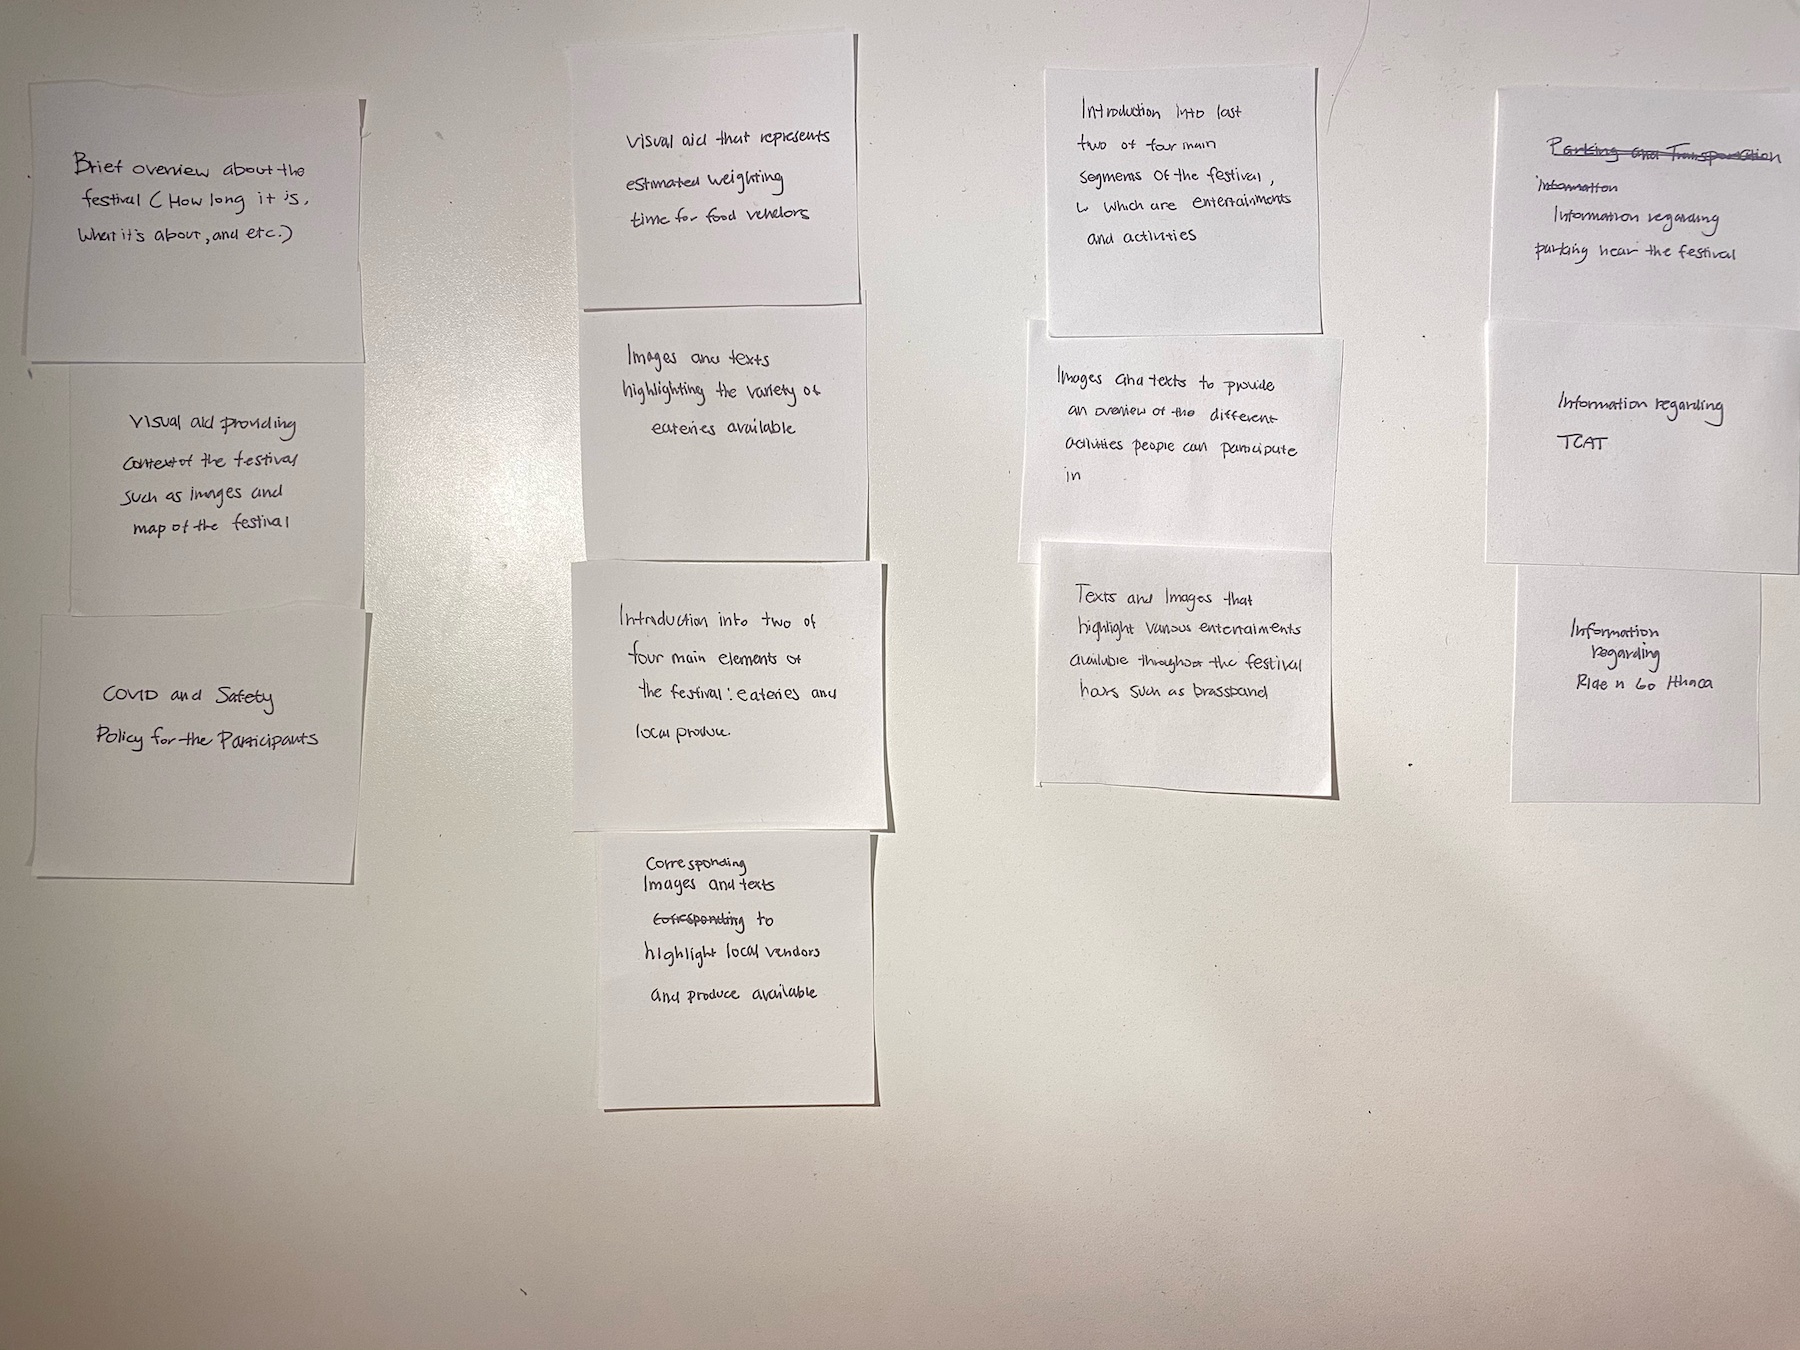 Brief overview about the
festival (How long it is,
What it's about, and etc.)
Visual aid providing
context of the festival
such as images and
map of the festival
COVID and Safety
Policy for the Participants
Visual aid that represents
estimated weighting
time for food vendors
Images and texts
highlighting the variety of
eateries available
Introduction into two of
four main elements of
the festival: eateries and
local produce.
Corresponding
Images and texts
corresponding to
highlight local vendors
and produce available
Introduction into last
two of four main
segments of the festival,
↳ which are entertainments
and activities
Images and texts to provide
an overview of the different
activities people can participate
in
Texts and Images that
highlight various entertaiments
available throughout the festival
hours such as brassband
Parking and Transportation
Information
Information regarding
parking near the festival
Information regarding
TCAT
Information
regarding
Ride n Go Ithaca